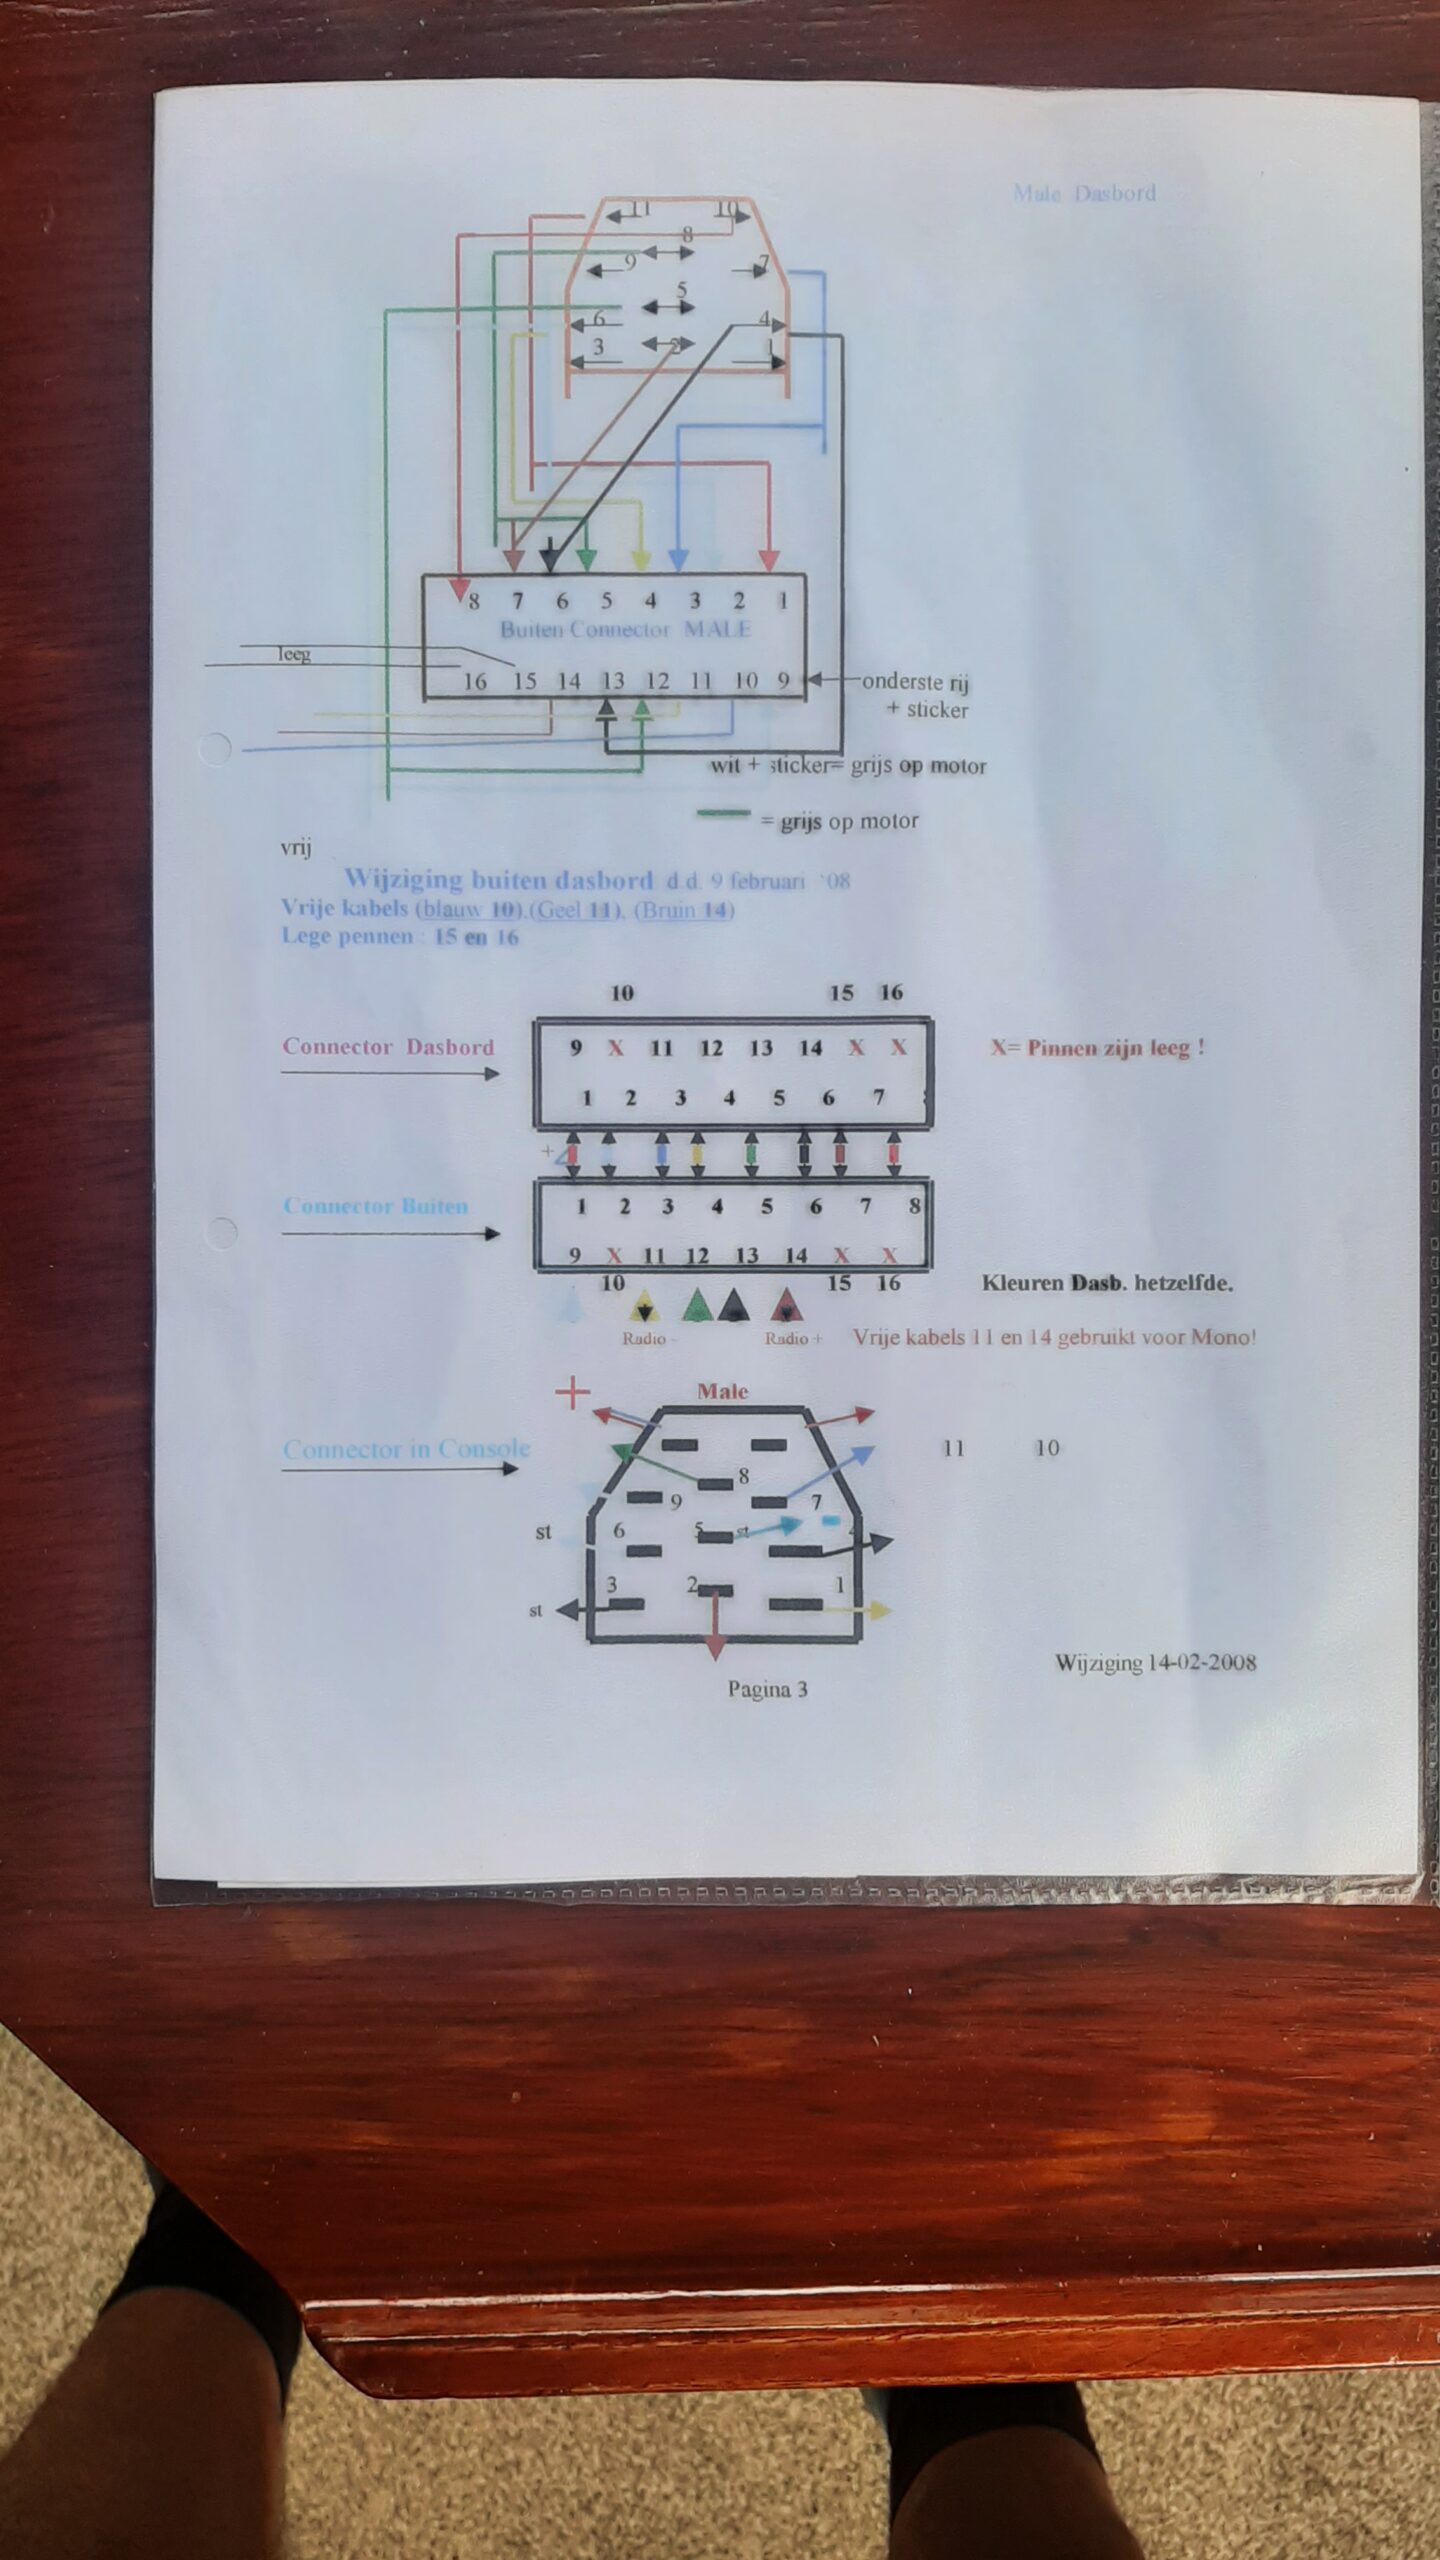 Male Dasbord
11 10
8
9 7
5
6 4
3 2 1
8 7 6 5 4 3 2 1
Buiten Connector MALE
leeg
16 15 14 13 12 11 10 9
onderste rij
+ sticker
wit + sticker= grijs op motor
= grijs op motor
vrij
Wijziging buiten dasbord d.d. 9 februari '08
Vrije kabels (blauw 10).(Geel 11), (Bruin 14)
Lege pennen : 15 en 16
10 15 16
Connector Dasbord
9 X 11 12 13 14 X X
X= Pinnen zijn leeg !
1 2 3 4 5 6 7
+
Connector Buiten
1 2 3 4 5 6 7 8
9 X 11 12 13 14 X X
10 15 16
Kleuren Dasb. hetzelfde.
Radio - Radio + Vrije kabels 11 en 14 gebruikt voor Mono!
+ Male
Connector in Console
11 10
8
9 7
st 6 5 st 4
3 2 1
st
Wijziging 14-02-2008
Pagina 3